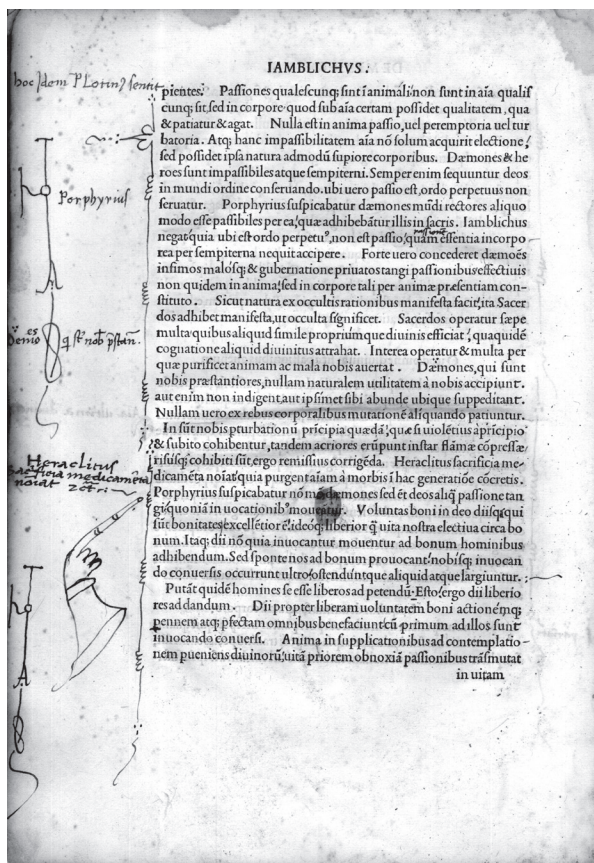 IAMBLICHVS.
hoc Idem Plotin⁹ sentit
pientes. Passiones qualescunq; sint ī animali: non sunt in aīa qualis
cunq; sit, sed in corpore quod sub aīa certam possidet qualitatem, qua
& patiatur & agat. Nulla est in anima passio, uel peremptoria uel tur
batoria. Atq; hanc impassibilitatem aīa nō solum acquirit electione,
sed possidet ipsa natura admodū supiore corporibus. Dæmones & he
roes sunt impassibiles atque sempiterni. Semper enim sequuntur deos
in mundi ordine conseruando. ubi uero passio est, ordo perpetuus non
Porphyrius
seruatur. Porphyrius suspicabatur dæmones mūdi rectores aliquo
modo esse passibiles per ea, quæ adhibebātur illis in sacris. Iamblichus
negat: quia ubi est ordo perpetu⁹, non est passio, quam essentia incorpo
passione
rea per sempiterna nequit accipere. Forte uero concederet dæmōes
infimos malosq; & gubernatione priuatos tangi passionibus effectiuis
non quidem in anima, sed in corpore tali per animæ præsentiam con-
stituto. Sicut natura ex occultis rationibus manifesta facit, ita Sacer
dos adhibet manifesta, ut occulta significet. Sacerdos operatur sæpe
multa quibus aliquid simile propriumque diuinis efficiat, quaquidē
cognatione aliquid diuinitus attrahat. Interea operatur & multa per
quæ purificet animam ac mala nobis auertat. Dæmones, qui sunt
nobis præstantiores, nullam naturalem utilitatem à nobis accipiunt.
aut enim non indigent, aut ipsimet sibi abunde ubique suppeditant.
Nullam uero ex rebus corporalibus mutationē aliquando patiuntur.
In sūt nobis pturbationū prīcipia quædā, quæ si uiolētius a prīcipio
& subito cohibentur, tandem acriores erūpunt instar flāmæ cōpressæ
Heraclitus
sacrificia medicamēta
noiat
risusq; cohibiti sūt, ergo remissius corrigēda. Heraclitus sacrificia me-
dicamēta noīat: quia purgent aīam à morbis ī hac generatiōe cōcretis.
Porphyrius suspicabatur nō mō dæmones sed et deos aliq̄ passione tan
gi: quoniā in uocationib⁹ mouentur. Voluntas boni in deo diisq; qui
sūt bonitates, excellētior ē, ideoq; liberior q̄ uita nostra electiua circa bo
num. Itaq; dii nō quia inuocantur mouentur ad bonum hominibus
adhibendum. Sed sponte nos ad bonum prouocant: nobisq; inuocan
do conuersis occurrunt ultro, ostenduntque aliquid atque largiuntur.
Putāt quidē homines se esse liberos ad petendū. Esto, ergo dii liberio
res ad dandum. Dii propter liberam uoluntatem boni actionēmq;
pennem atq; pfectam omnibus benefaciunt: cū primum ad illos sunt
inuocando conuersi. Anima in supplicationibus ad contemplatio-
nem pueniens diuinorū, uitā priorem obnoxiā passionibus trāsmutat
in uitam